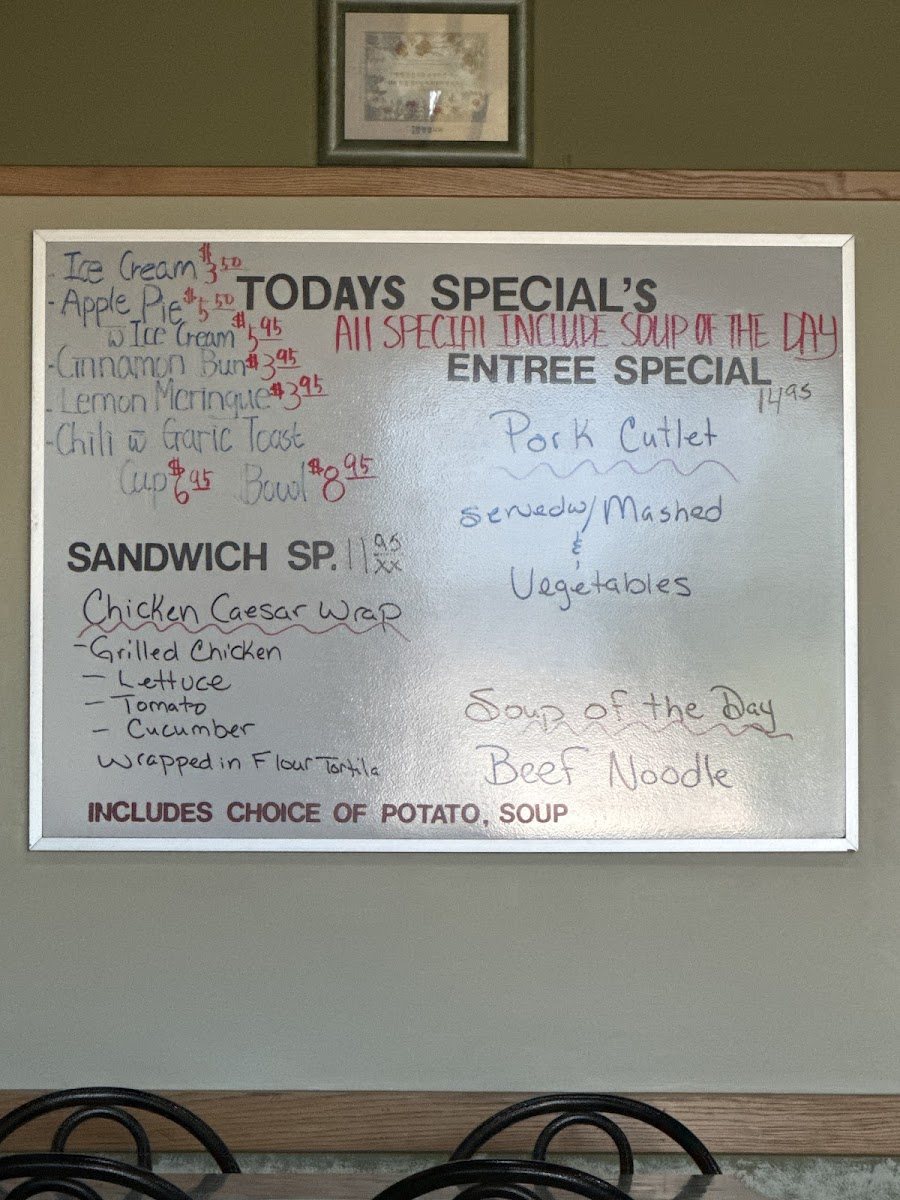 - Ice Cream $3.50
TODAYS SPECIAL'S
- Apple Pie $5.50
w Ice Cream $5.95
All SPECIAl INCLUDE SOUP OF THE DAY
- Cinnamon Bun $3.95
ENTREE SPECIAL
14.95
- Lemon Meringue $3.95
- Chili w Garic Toast
Cup $6.95 Bowl $8.95
Pork Cutlet
served w/ Mashed
&
Vegetables
SANDWICH SP. 11 95/xx
Chicken Caesar Wrap
- Grilled Chicken
- Lettuce
- Tomato
- Cucumber
Wrapped in Flour Tortila
Soup of the Day
Beef Noodle
INCLUDES CHOICE OF POTATO, SOUP